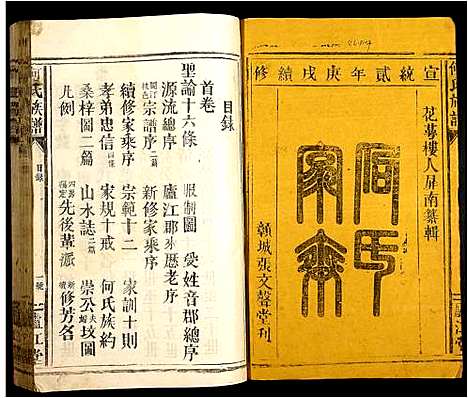 宣統貳年庚戌續修
花萼樓人屏南纂輯
何氏家乘
彰城張文聲堂刊
何氏族譜
廬江堂
目錄
首卷
聖諭十六條 服制圖 受姓音郡總序
源流總序 廬江郡來歷老序
宗譜序 新修家乘序
續修家乘序 宗範十二 家訓十則
孝弟信忠 家規十戒 何氏族約
桑梓圖二篇 山水誌 崇公坟圖
凡例 先後輩派 續新修芳名
何氏族譜
目錄
一號
廬江堂